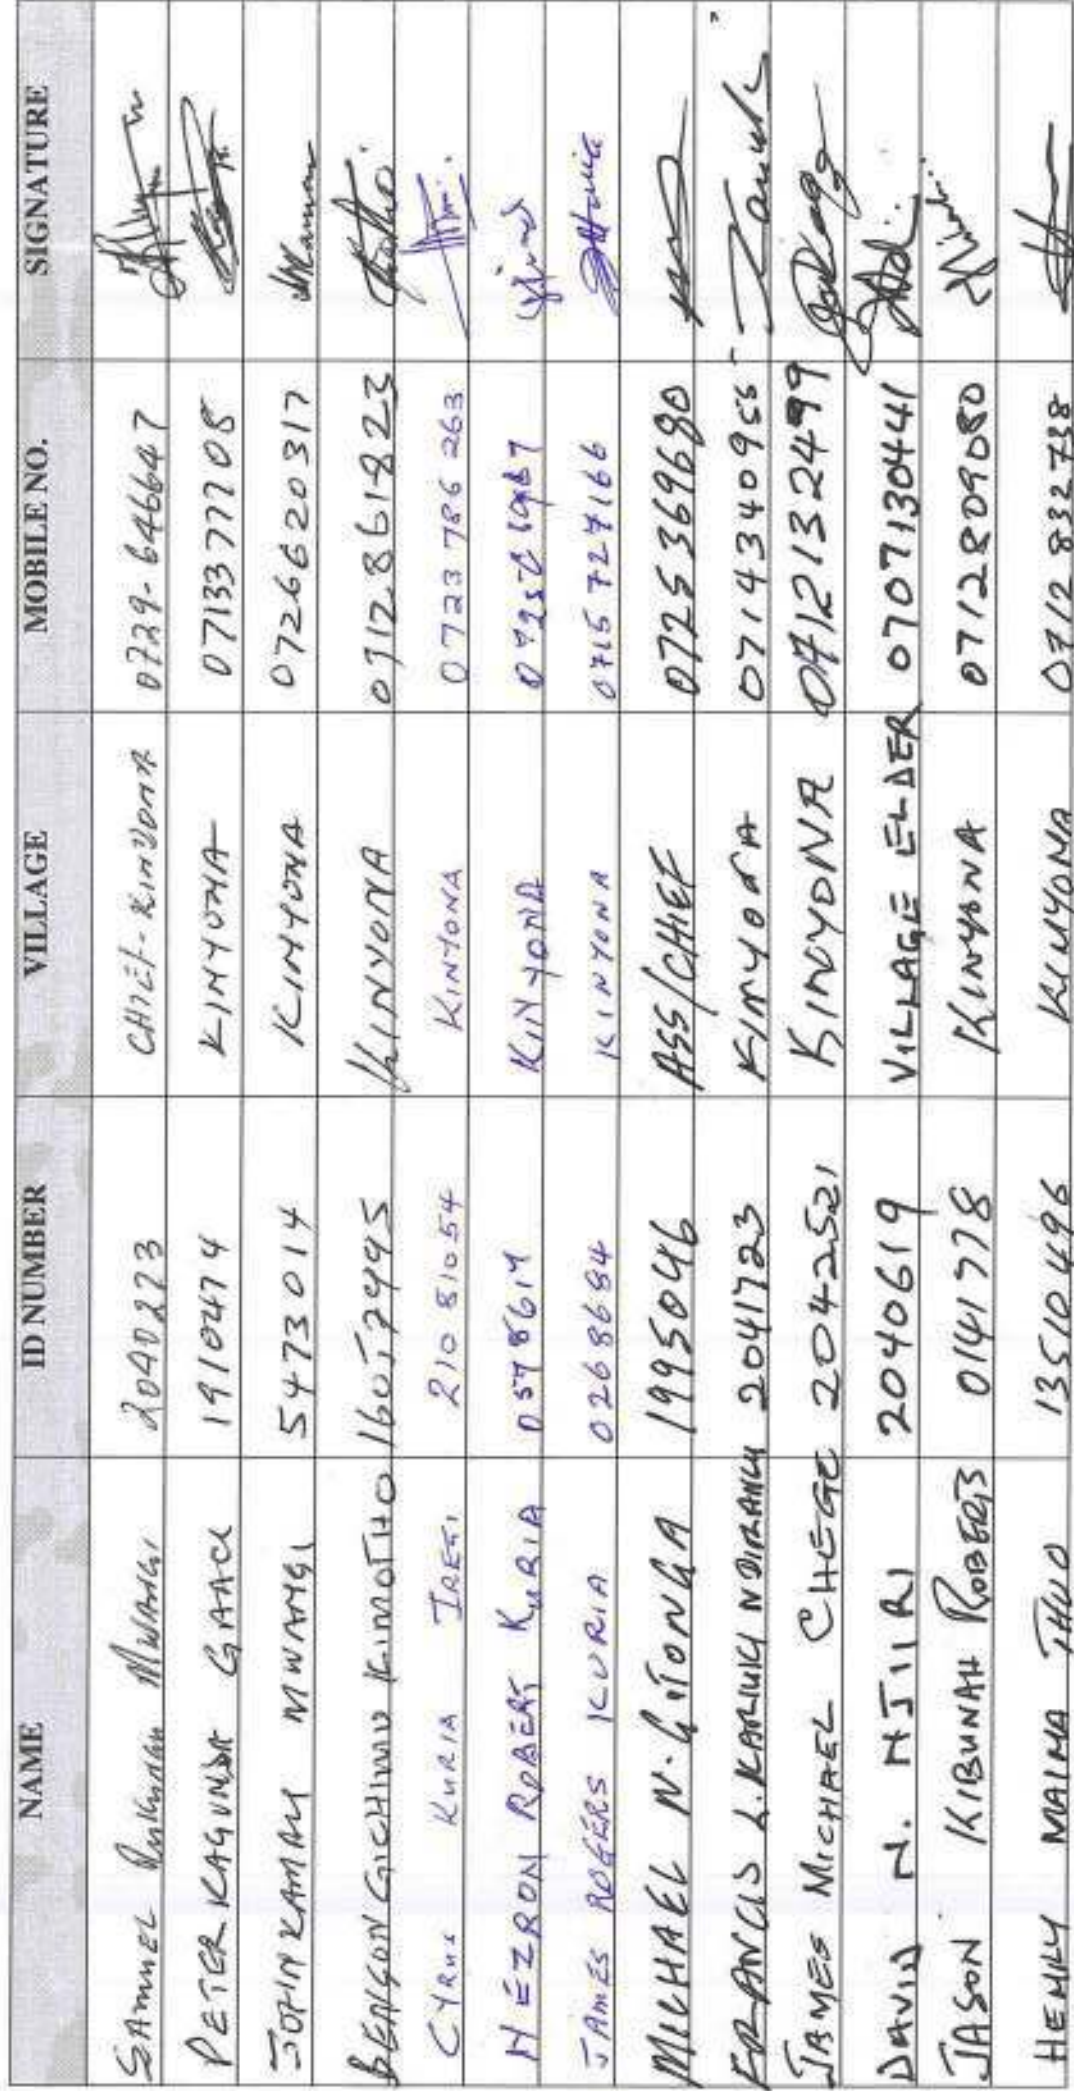 NAME ID NUMBER VILLAGE MOBILE NO. SIGNATURE
SAMUEL MWANGI 2040273 CHIEF-KINYONA 0729-646647
PETER KAGUNDA GAACU 1910474 KINYONA 0713377708
JOHN KAMAU MWANGI 5473014 KINYONA 0726620317
BENSON GICHIMU KIMOTHO KINYONA 0712861823
CYRUS KURIA IREGI 21081054 KINYONA 0723786263
HEZRON ROBERT KURIA KINYONA
JAMES ROGERS KURIA 0268684 KINYONA 0715727166
MICHAEL N. GITONGA 1995046 ASS/CHIEF 0725369680
FRANCIS L. KARIUKI NDIRANGU 2041723 KINYONA 0714340955
JAMES MICHAEL CHEGE 2042521 KINYONA 0712132499
DAVID N. NJIIRI 2040619 VILLAGE ELDER 0707130441
JASON KIBUNAH ROBERTS 0141978 KINYONA 0712809080
HENRY MAINA THUO 13510496 KINYONA 0712832738